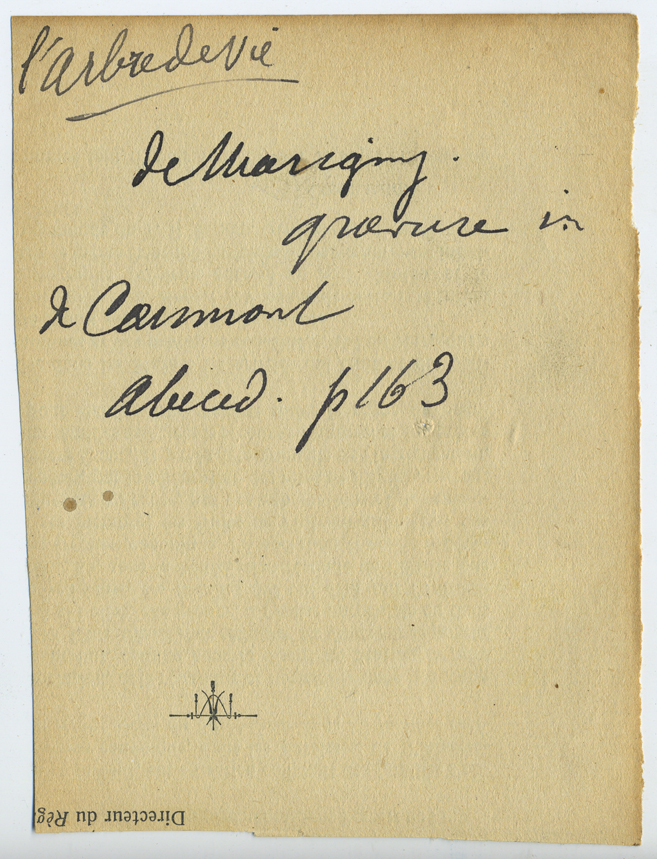 l'Arbre de Vie
de Marigny.
gravure in
de Caumont
Abeced. p163
Directeur du Règ